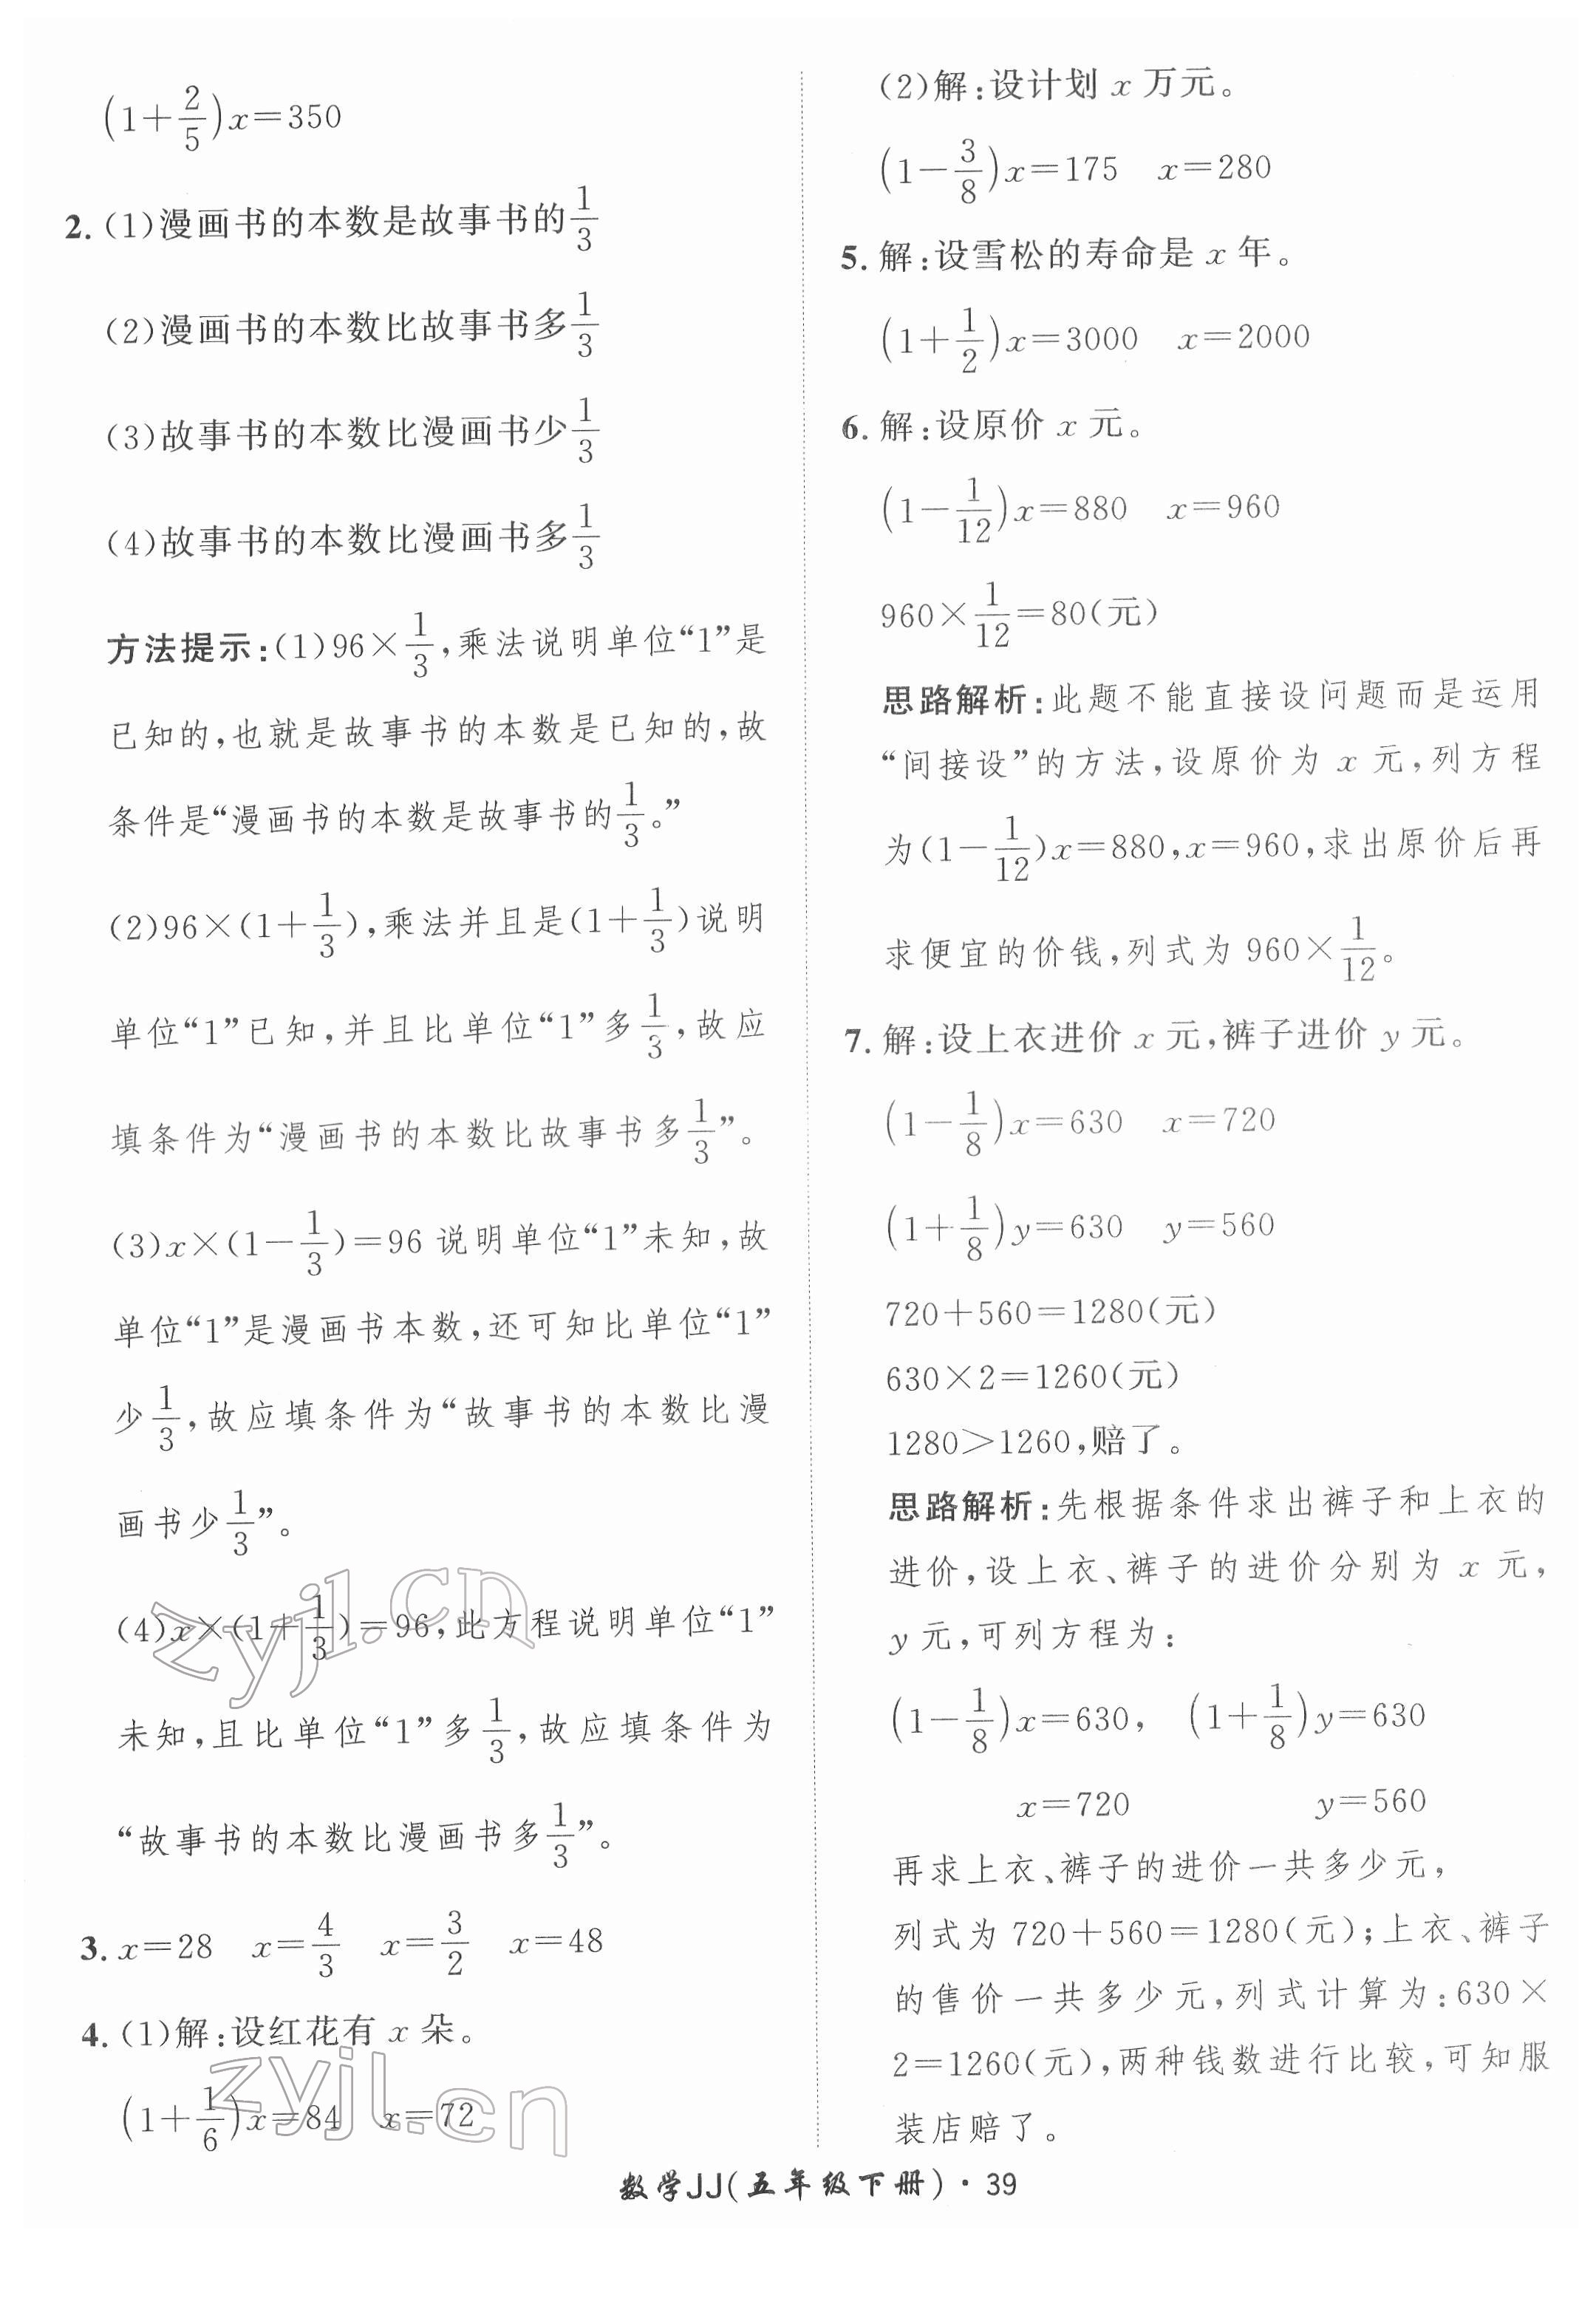 (1+2/5)x=350
2. (1)漫画书的本数是故事书的1/3
(2)漫画书的本数比故事书多1/3
(3)故事书的本数比漫画书少1/3
(4)故事书的本数比漫画书多1/3
方法提示:(1)96×1/3,乘法说明单位“1”是
已知的,也就是故事书的本数是已知的,故
条件是“漫画书的本数是故事书的1/3。”
(2)96×(1+1/3),乘法并且是(1+1/3)说明
单位“1”已知,并且比单位“1”多1/3,故应
填条件为“漫画书的本数比故事书多1/3”。
(3)x×(1-1/3)=96 说明单位“1”未知,故
单位“1”是漫画书本数,还可知比单位“1”
少1/3,故应填条件为“故事书的本数比漫
画书少1/3”。
(4)x×(1+1/3)=96,此方程说明单位“1”
未知,且比单位“1”多1/3,故应填条件为
“故事书的本数比漫画书多1/3”。
3. x=28 x=4/3 x=3/2 x=48
4. (1)解:设红花有 x 朵。
(1+1/6)x=84 x=72
(2)解:设计划 x 万元。
(1-3/8)x=175 x=280
5. 解:设雪松的寿命是 x 年。
(1+1/2)x=3000 x=2000
6. 解:设原价 x 元。
(1-1/12)x=880 x=960
960×1/12=80(元)
思路解析:此题不能直接设问题而是运用
“间接设”的方法,设原价为 x 元,列方程
为(1-1/12)x=880,x=960,求出原价后再
求便宜的价钱,列式为 960×1/12。
7. 解:设上衣进价 x 元,裤子进价 y 元。
(1-1/8)x=630 x=720
(1+1/8)y=630 y=560
720+560=1280(元)
630×2=1260(元)
1280>1260,赔了。
思路解析:先根据条件求出裤子和上衣的
进价,设上衣、裤子的进价分别为 x 元,
y 元,可列方程为:
(1-1/8)x=630, (1+1/8)y=630
x=720 y=560
再求上衣、裤子的进价一共多少元,
列式为 720+560=1280(元);上衣、裤子
的售价一共多少元,列式计算为:630×
2=1260(元),两种钱数进行比较,可知服
装店赔了。
数学JJ(五年级下册)·39
zyjl.cn
zyjl.cn